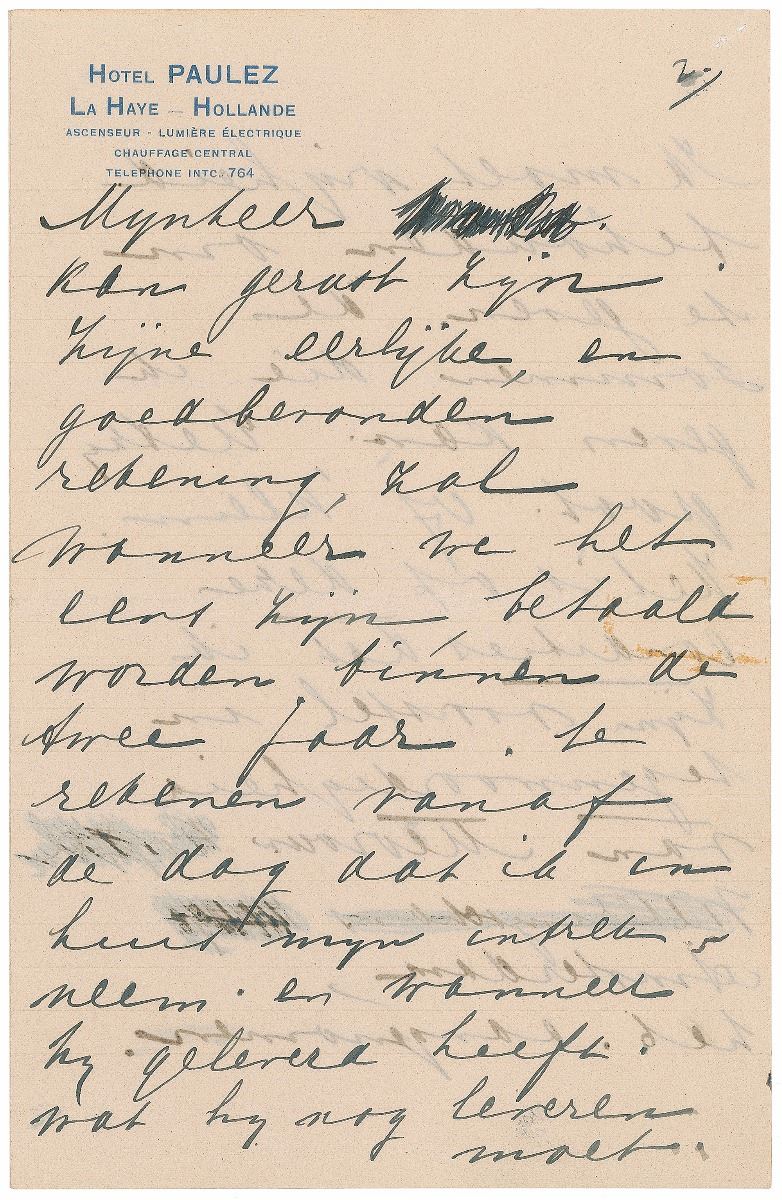 HOTEL PAULEZ
LA HAYE — HOLLANDE
ASCENSEUR - LUMIÈRE ÉLECTRIQUE
CHAUFFAGE CENTRAL
TELEPHONE INTC. 764
2.
Mynheer
kan gerust zijn.
zijne eerlijke, en
goedbevonden
rekening, zal
wanneer we het
eens zijn, betaald
worden binnen de
twee jaar. te
rekenen vanaf
de dag dat ik in
huis myn intrek
neem. en wanneer
hy geleverd heeft.
wat hy nog leveren
moet.